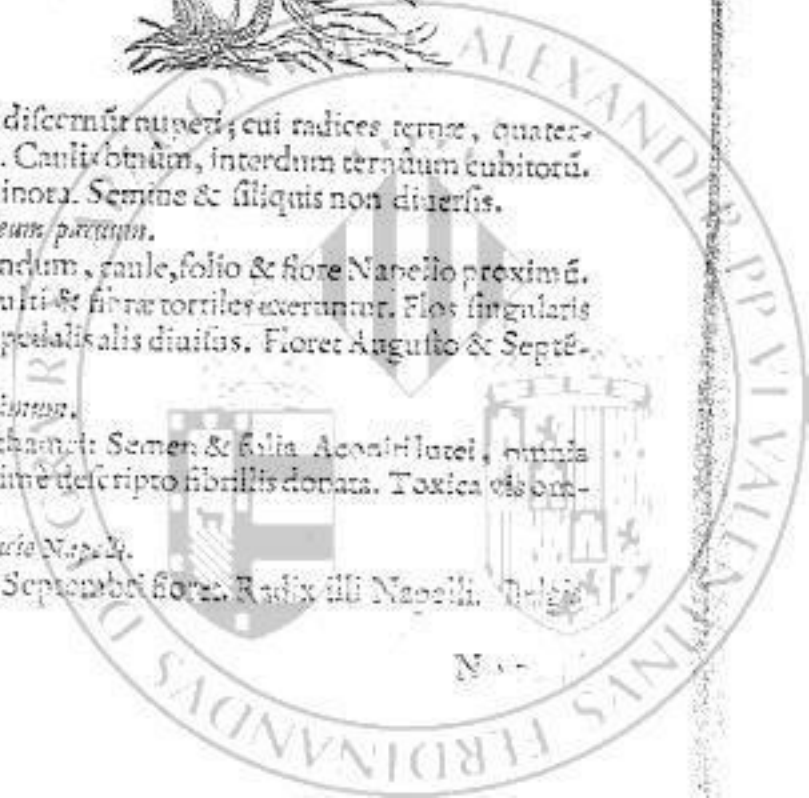 discernũt nuperi; cui radices ternæ, quater-
. Caulis binûm, interdum ternûum cubitorũ.
inora. Semine & siliquis non diuersis.
eum paruum.
ndum, caule, folio & flore Napello proximũ.
ulti & fibræ tortiles exeruntur. Flos singularis
pedalis alis diuisus. Floret Augusto & Septẽ-
Semen & folia Aconiti lutei, omnia
ime descripto fibrillis donata. Toxica vis om-
Napelli.
Septembri floret. Radix illi Napelli. Belgis
ALEXANDER PP VI VALENTINVS FERDINANDVS